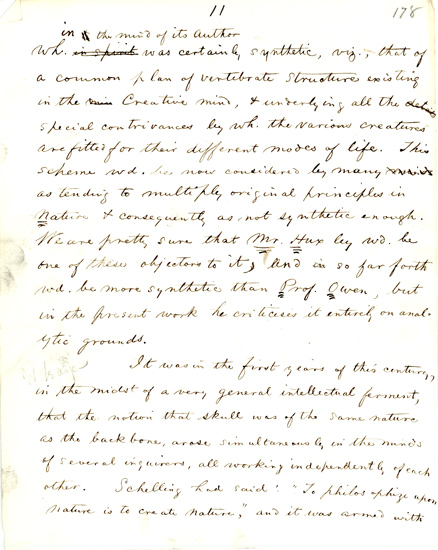 11
178
in the mind of its Author
wh. in spirit was certainly synthetic, viz., that of
a common plan of vertebrate structure existing
in the Creative mind, & underlying all the
special contrivances by wh. the various creatures
are fitted for their different modes of life. This
scheme wd. be now considered by many
as tending to multiply original principles in
Nature & consequently as not synthetic enough.
We are pretty sure that Mr. Huxley wd. be
one of these objectors to it, and in so far forth
wd. be more synthetic than Prof. Owen, but
in the present work he criticises it entirely on anal-
ytic grounds.
It was in the first years of this century,
in the midst of a very general intellectual ferment,
that the notion that skull was of the same nature
as the backbone, arose simultaneously in the minds
of several inquirers, all working independently of each
other. Schelling had said: "To philosophize upon
nature is to create nature," and it was armed with